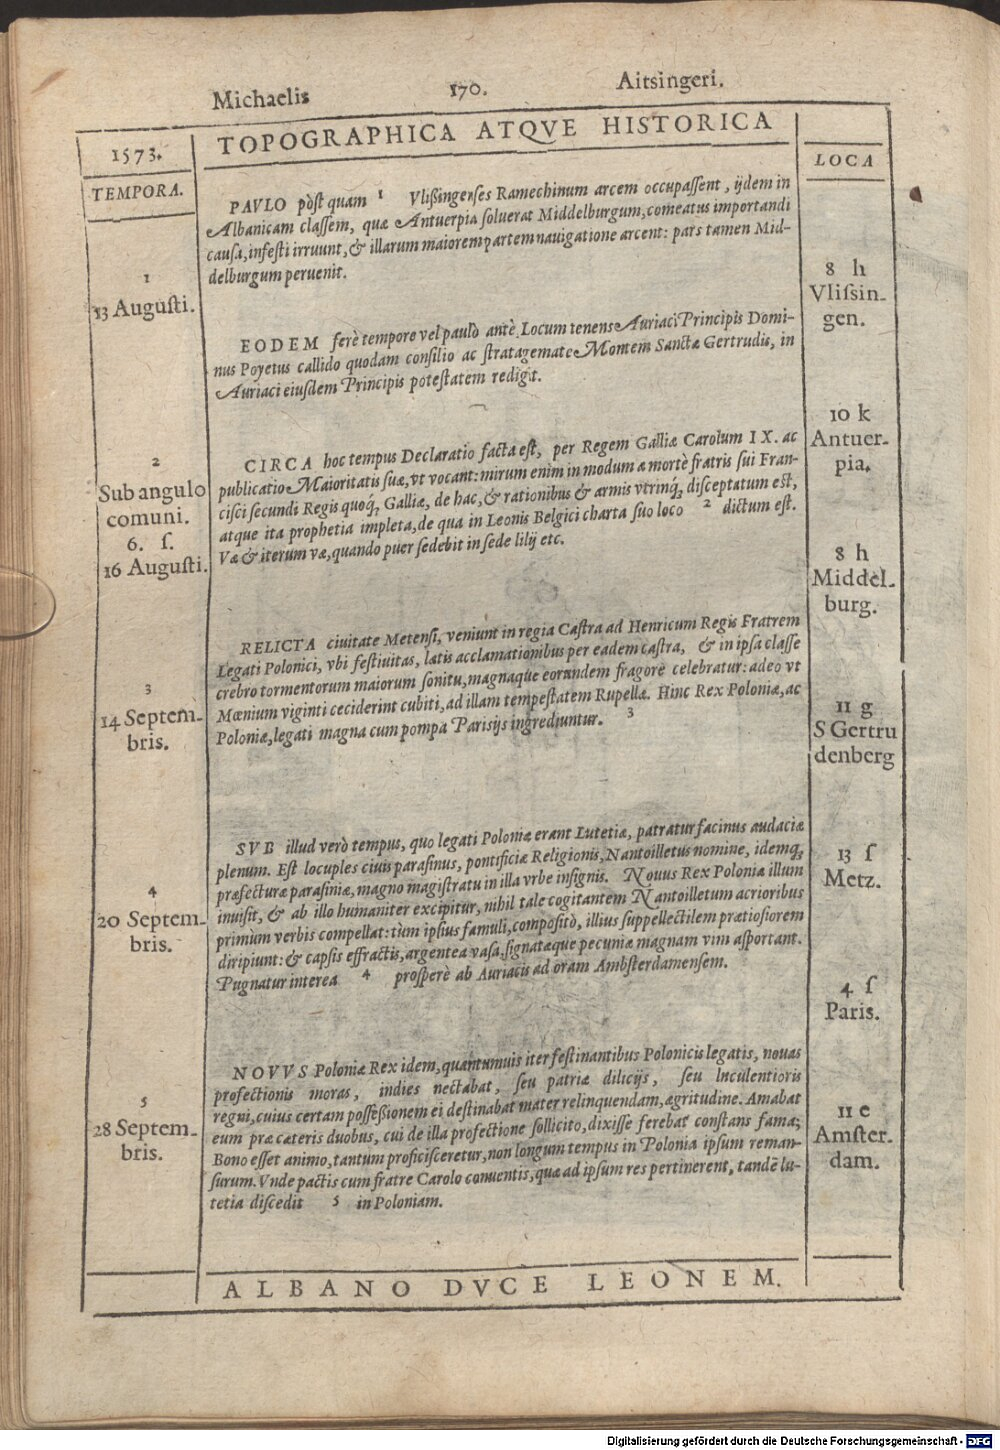 Michaelis 170. Aitsingeri.
1573. TOPOGRAPHICA ATQVE HISTORICA
TEMPORA.
LOCA
PAVLO pòst quam 1 Vlißingenses Ramechinum arcem occupassent, ijdem in
Albanicam classem, quæ Antuerpia soluerat Middelburgum, comeatus importandi
causa, infesti irruunt, & illarum maiorem partem nauigatione arcent: pars tamen Mid-
delburgum peruenit.
1
13 Augusti.
8 h
Vlissin-
gen.
EODEM ferè tempore vel paulò antè Locum tenens Auriaci Principis Domi-
nus Poyetus callido quodam consilio ac stratagemate Montem Sanctæ Gertrudis, in
Auriaci eiusdem Principis potestatem redigit.
10 k
Antuer-
pia.
CIRCA hoc tempus Declaratio facta est, per Regem Galliæ Carolum IX. ac
publicatio Maioritatis suæ, vt vocant: mirum enim in modum a mortè fratris sui Fran-
cisci secundi Regis quoq́; Galliæ, de hac, & rationibus & armis vtrinq́; disceptatum est,
atque ita prophetia impleta, de qua in Leonis Belgici charta suo loco 2 dictum est.
Væ & iterum væ, quando puer sedebit in sede lilij etc.
2
Sub angulo
comuni.
6. ſ.
16 Augusti.
8 h
Middel-
burg.
RELICTA ciuitate Metensi, veniunt in regia Castra ad Henricum Regis Fratrem
Legati Polonici, vbi festiuitas, latis acclamationibus per eadem castra, & in ipsa classe
crebro tormentorum maiorum sonitu, magnaque eorundem fragore celebratur: adeo vt
Mœnium viginti ceciderint cubiti, ad illam tempestatem Rupellæ. Hinc Rex Poloniæ, ac
Poloniæ, legati magna cum pompa Parisijs ingrediuntur. 3
3
14 Septem-
bris.
11 g
S Gertru
denberg
SVB illud verò tempus, quo legati Poloniæ erant Lutetiæ, patratur facinus audaciæ
plenum. Est locuples ciuis parasinus, pontificiæ Religionis, Nantoilletus nomine, idemq́;
præfecturæ parasiniæ, magno magistratu in illa vrbe insignis. Nouus Rex Poloniæ illum
inuisit, & ab illo humaniter excipitur, nihil tale cogitantem Nantoilletum acrioribus
primùm verbis compellat: tùm ipsius famuli, compositò, illius suppellectilem prætiosiorem
diripiunt: & capsis effractis, argentea vasa, signatæque pecuniæ magnam vim asportant.
Pugnatur interea 4 prosperè ab Auriacis ad oram Ambsterdamensem.
4
20 Septem-
bris.
13 ſ
Metz.
4 ſ
Paris.
NOVVS Poloniæ Rex idem, quantumuis iter festinantibus Polonicis legatis, nouas
profectionis moras, indies nectabat, seu patriæ dilicijs, seu luculentioris
regni, cuius certam possessionem ei destinabat mater relinquendam, ægritudine. Amabat
eum præ cæteris duobus, cui de illa profectione sollicito, dixisse ferebat constans fama;
Bono esset animo, tantum proficisceretur, non longum tempus in Polonia ipsum reman-
surum. Vnde pactis cum fratre Carolo conuentis, quæ ad ipsum res pertinerent, tandē lu-
tetia discedit 5 in Poloniam.
5
28 Septem-
bris.
11 e
Amster-
dam.
ALBANO DVCE LEONEM.
Digitalisierung gefördert durch die Deutsche Forschungsgemeinschaft - DFG